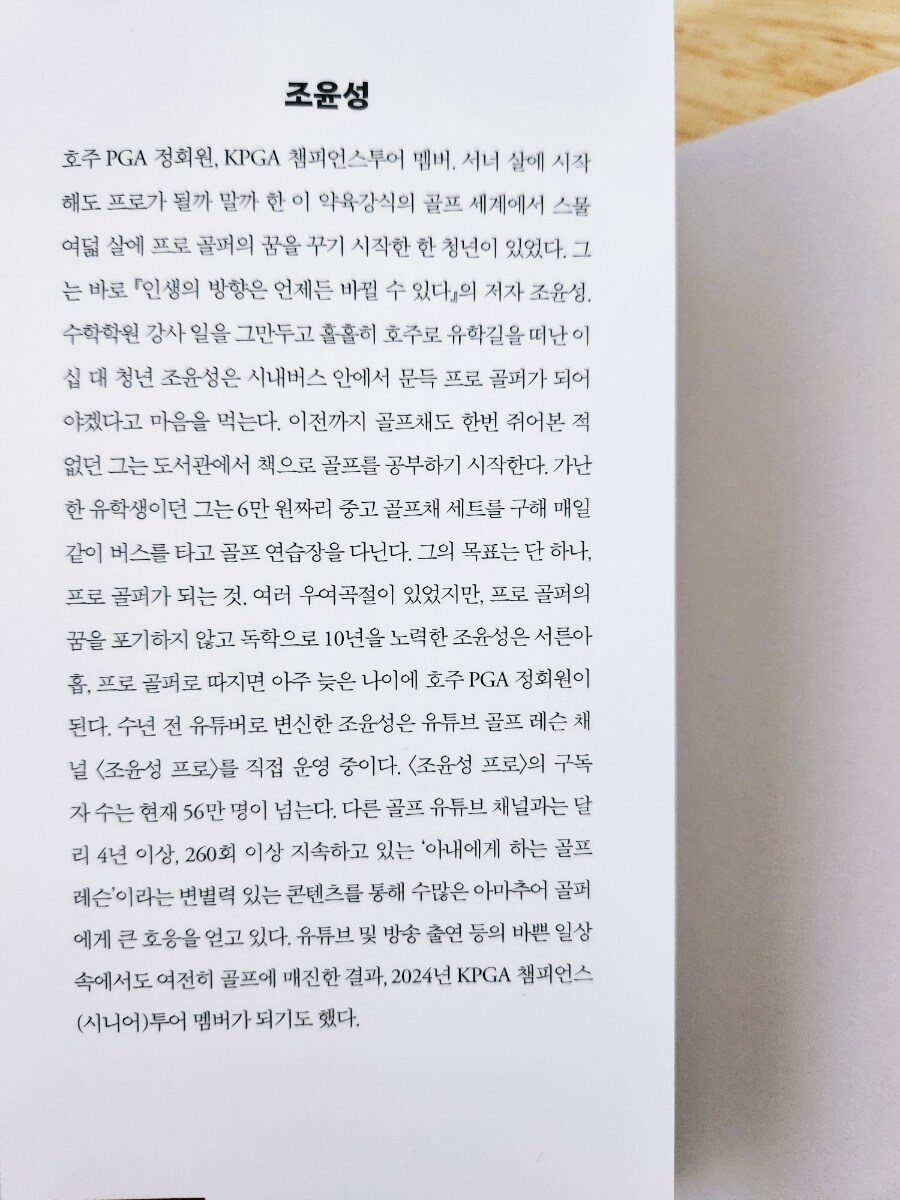 조윤성
호주 PGA 정회원, KPGA 챔피언스투어 멤버. 서너 살에 시작
해도 프로가 될까 말까 한 이 약육강식의 골프 세계에서 스물
여덟 살에 프로 골퍼의 꿈을 꾸기 시작한 한 청년이 있었다. 그
는 바로 『인생의 방향은 언제든 바뀔 수 있다』의 저자 조윤성.
수학학원 강사 일을 그만두고 홀홀히 호주로 유학길을 떠난 이
십 대 청년 조윤성은 시내버스 안에서 문득 프로 골퍼가 되어
야겠다고 마음을 먹는다. 이전까지 골프채도 한번 쥐어본 적
없던 그는 도서관에서 책으로 골프를 공부하기 시작한다. 가난
한 유학생이던 그는 6만 원짜리 중고 골프채 세트를 구해 매일
같이 버스를 타고 골프 연습장을 다닌다. 그의 목표는 단 하나,
프로 골퍼가 되는 것. 여러 우여곡절이 있었지만, 프로 골퍼의
꿈을 포기하지 않고 독학으로 10년을 노력한 조윤성은 서른아
홉, 프로 골퍼로 따지면 아주 늦은 나이에 호주 PGA 정회원이
된다. 수년 전 유튜버로 변신한 조윤성은 유튜브 골프 레슨 채
널 〈조윤성 프로〉를 직접 운영 중이다. 〈조윤성 프로〉의 구독
자 수는 현재 56만 명이 넘는다. 다른 골프 유튜브 채널과는 달
리 4년 이상, 260회 이상 지속하고 있는 ‘아내에게 하는 골프
레슨’이라는 변별력 있는 콘텐츠를 통해 수많은 아마추어 골퍼
에게 큰 호응을 얻고 있다. 유튜브 및 방송 출연 등의 바쁜 일상
속에서도 여전히 골프에 매진한 결과, 2024년 KPGA 챔피언스
(시니어)투어 멤버가 되기도 했다.